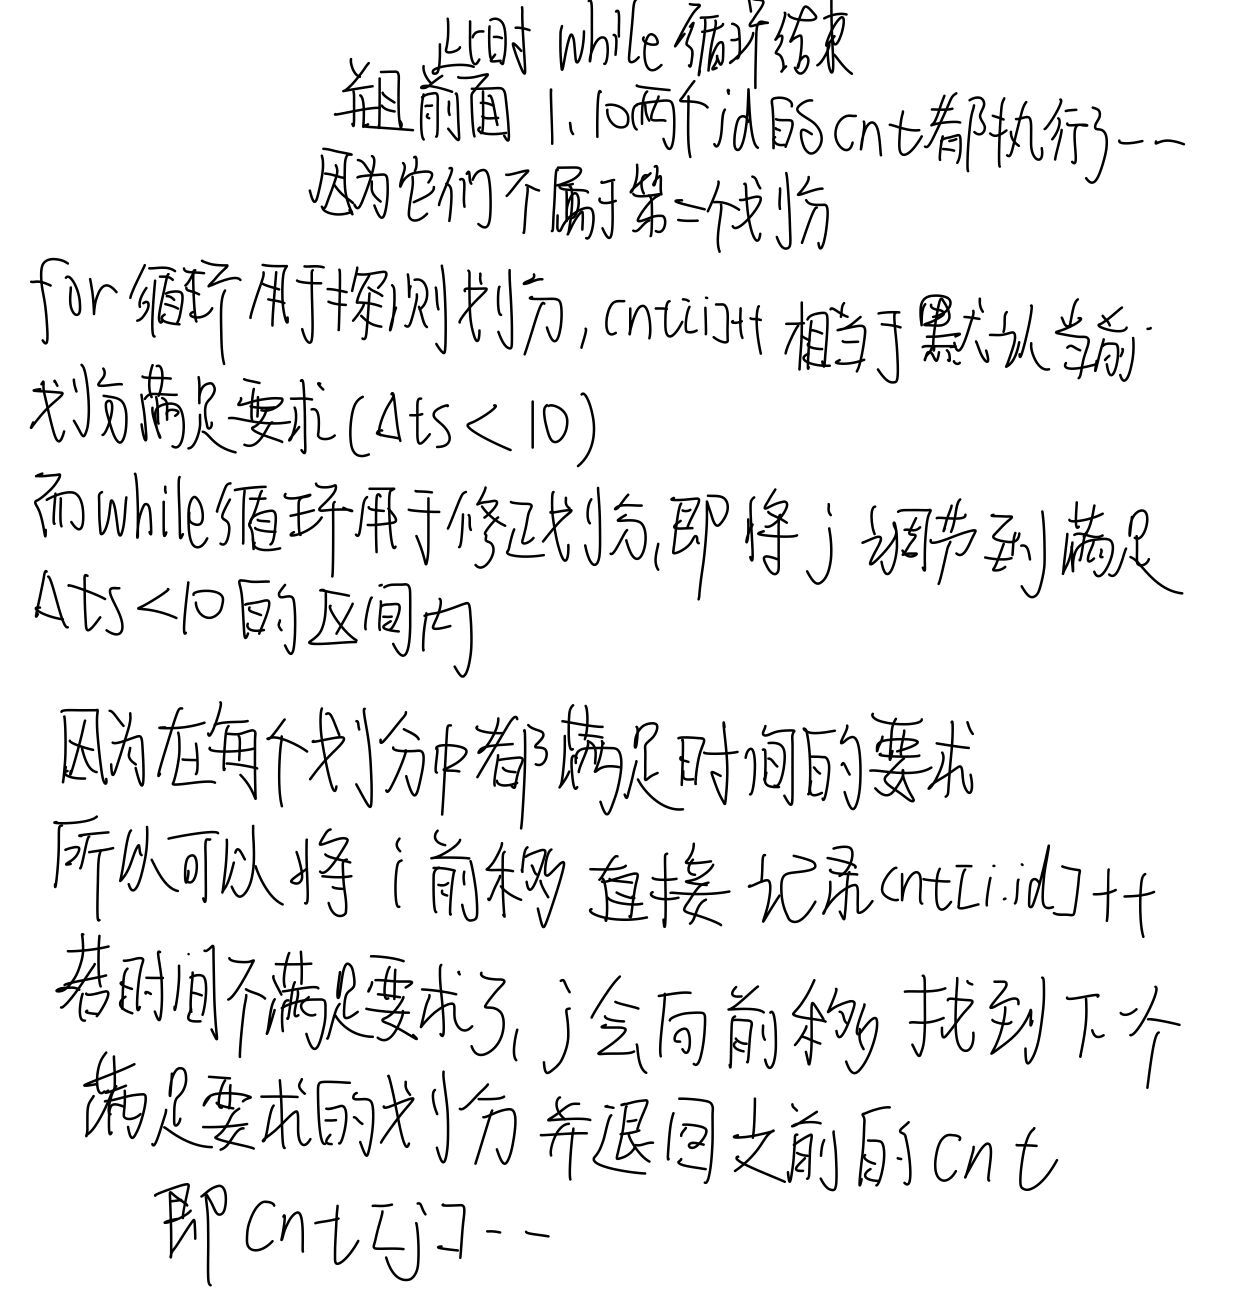 此时 while 循环结束
并且前面 1、10两个id的cnt都执行了--
因为它们不属于第二个划分
for 循环用于探测划分,cnt[i]++ 相当于默认当前
划分满足要求(Δts<10)
而while循环用于修正划分,即将 j 调节到满足
Δts<10的区间内
因为在每个划分中都满足时间的要求
所以可以将 i 前移 直接记录cnt[i.id]++
若时间不满足要求了,j会向前移 找到下一个
满足要求的划分 并退回之前的cnt
即 cnt[j]--